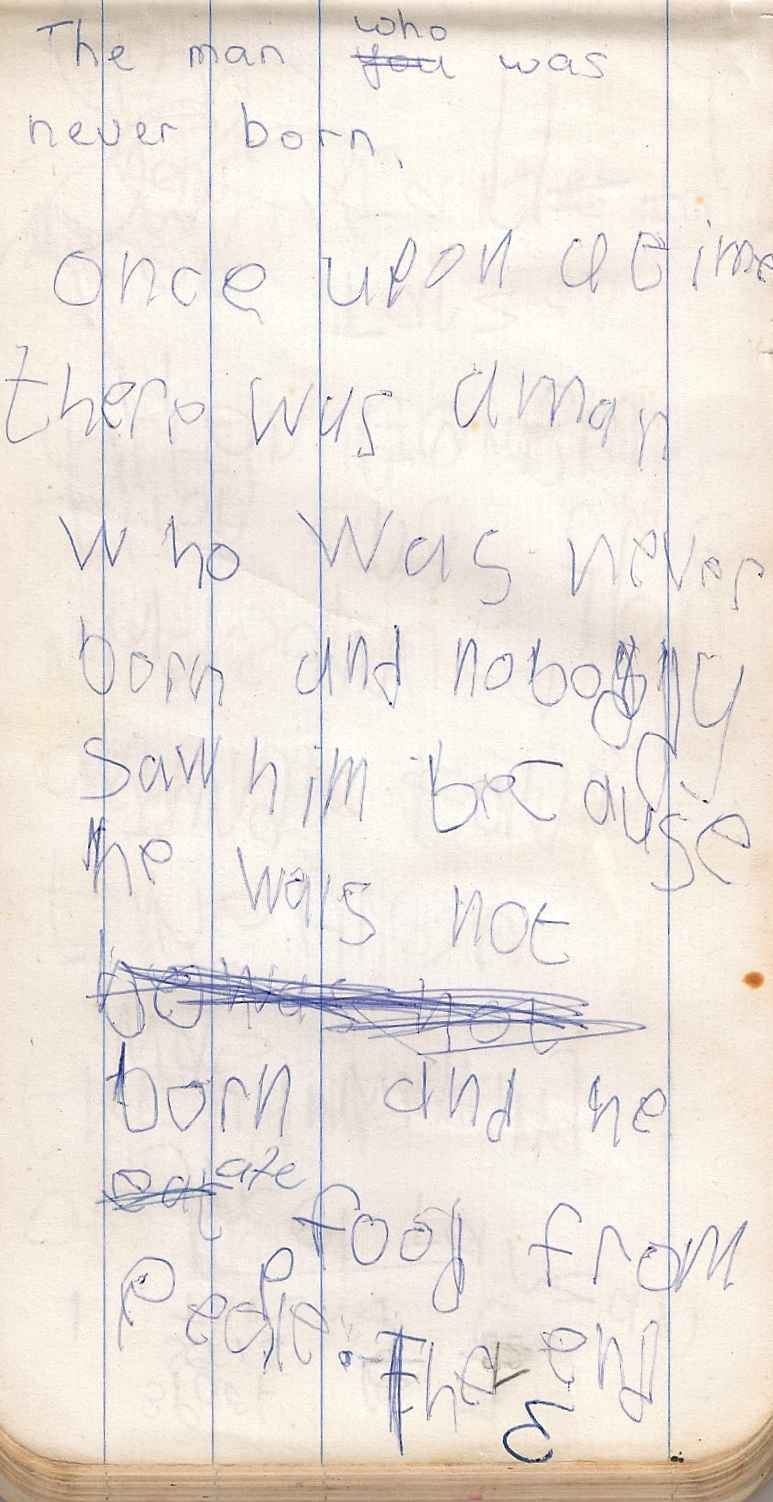 The man who was
never born.
once upon a time
there was a man
who was never
born and nobody
saw him because
he was not
born and he
ate food from
people. The end
3